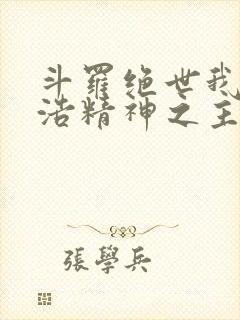 斗羅绝世我
浩精神之主
張學兵